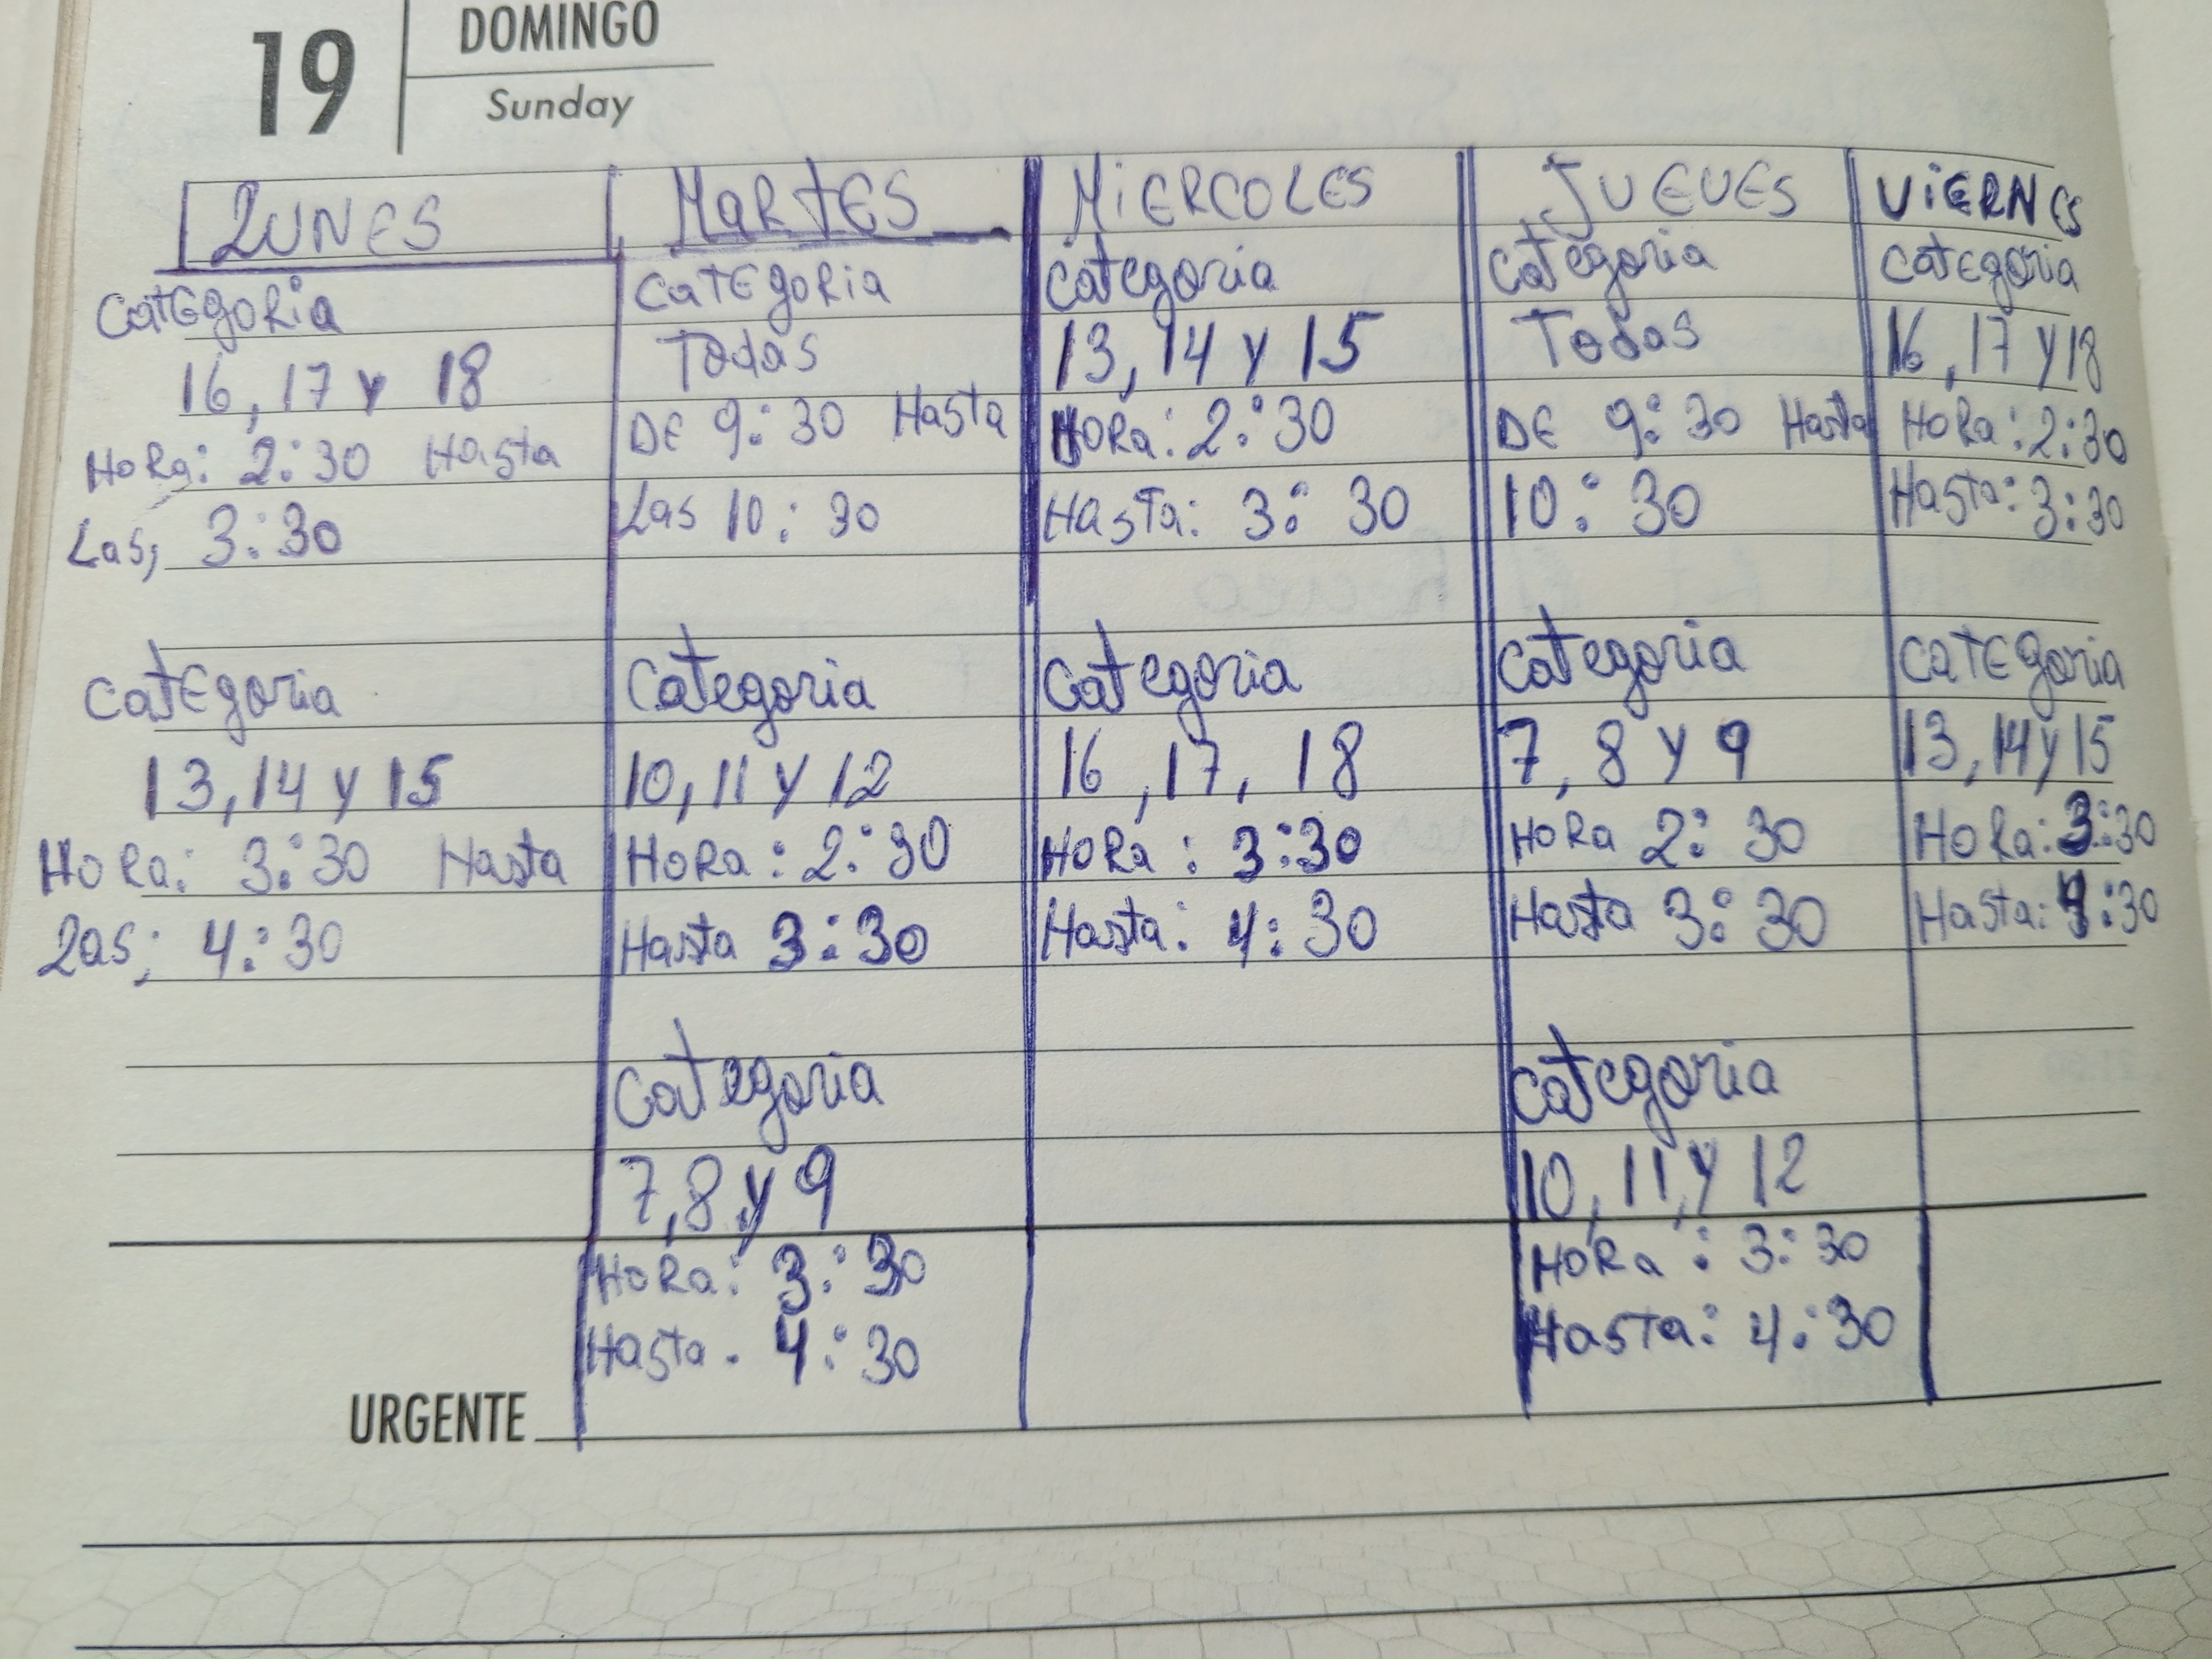 19
DOMINGO
Sunday
LUNES
CATEGORIA
16, 17 Y 18
HORA: 2:30 Hasta
Las; 3:30
CATEGoria
13, 14 Y 15
HORa: 3:30 Hasta
Las; 4:30
MARTES
CATEGORIA
Todas
DE 9:30 Hasta
Las 10:30
Categoria
10, 11 Y 12
HORa: 2:30
Hasta 3:30
Categoria
7, 8 y 9
HORa: 3:30
Hasta. 4:30
MiERCOLES
Categoria
13, 14 Y 15
HORa: 2:30
HasTa: 3:30
Categoria
16, 17, 18
HORa: 3:30
Hasta: 4:30
JUEUES
Categoria
Todas
DE 9:30 Hasta
10:30
Categoria
7, 8 Y 9
HORa 2:30
Hasta 3:30
Categoria
10, 11, Y 12
HORa: 3:30
HasTa: 4:30
ViERNES
CaTEgoria
16, 17 Y 18
HORa: 2:30
Hasta: 3:30
CaTEgoria
13, 14 y 15
HORa: 3:30
Hasta: 4:30
URGENTE